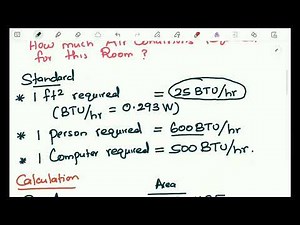 How much Air Conditions
for this Room ?
Standard
* 1 ft² required = 25 BTU/hr
(BTU/hr = 0.293W)
* 1 person required = 600BTU/hr
* 1 Computer required = 500BTU/hr.
Calculation
Area